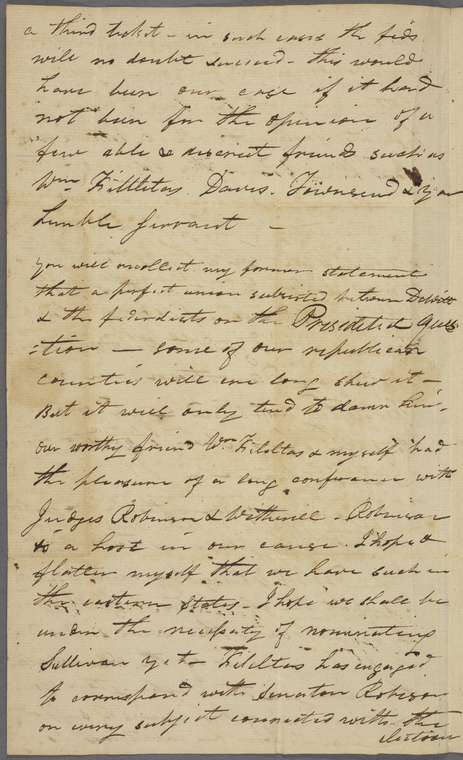 a third ticket - in such case the feds
will no doubt succeed - this would
have been our case if it had
not been for the opinion of a
few able & discreet friends such as
Wm Filleltas Davis. Townsend & your
humble servant -
you will recollect my former statement
that a perfect union subsisted between Dewitt
& the federalists on the Presidential Ques
=tion — some of our republican
counties will ere long shew it -
But it will only tend to damn him.
our worthy friend Wm Fileltas & myself had
the pleasure of a long conference with
Judges Robinson & Witherell - Robinson
is a host in our cause. I hope &
flatter myself that we have such in
the eastern States. I hope we shall be
under the necessity of nominating
Sullivan yet - Fileltas has engaged
to correspond with Senator Robinson
on every subject connected with the
election